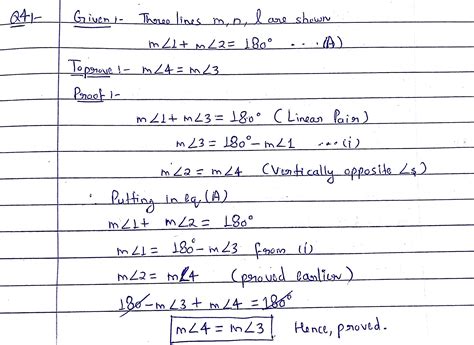 Q4:- Given:- Three lines m, n, l are shown
m∠1 + m∠2 = 180° ... (A)
To prove:- m∠4 = m∠3
Proof:-
m∠1 + m∠3 = 180° (Linear Pair)
m∠3 = 180° - m∠1 ... (i)
m∠2 = m∠4 (Vertically opposite ∠s)
Putting in eq. (A)
m∠1 + m∠2 = 180°
m∠1 = 180° - m∠3 from (i)
m∠2 = m∠4 (proved earlier)
180 - m∠3 + m∠4 = 180°
m∠4 = m∠3 Hence, proved.